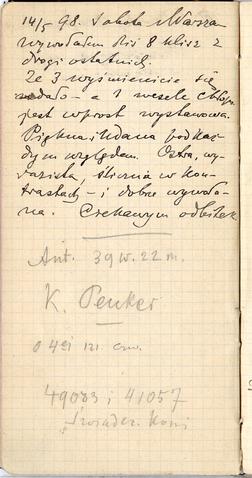 14/5 98. Sobota Warsza
wywołałem dziś 8 klisz z
drogi ostatniej.
Ze 3 wyśmienicie się
udało – a 1 wesele chłop.
jest wprost wystawowa.
Piękna i udana pod każ-
dym względem. Ostra, wy-
razista, śliczna w kon-
trastach – i dobrze wywoła-
na. Ciekawym odbitek
Ant. 39 w. 22 m.
K. Penker
o 4ej
49083 i 41057